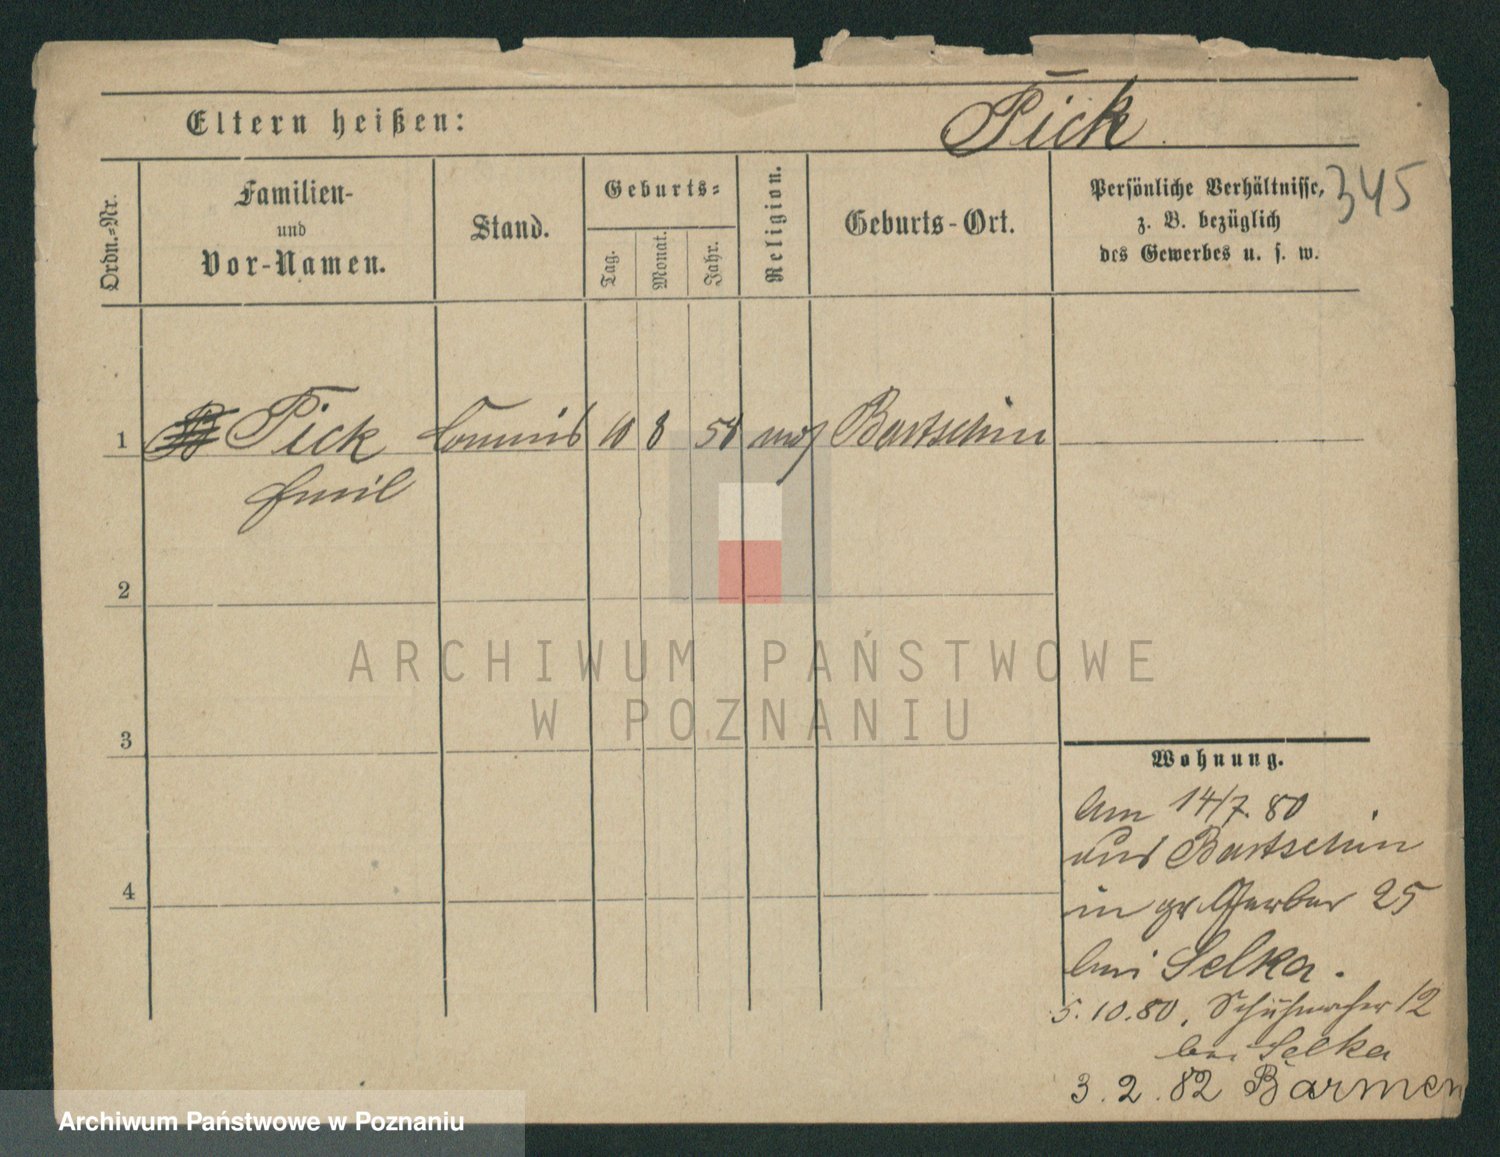 Eltern heißen:
Pick
345
Ordn.-Nr.
Familien-
und
Vor-Namen.
Stand.
Geburts-
Tag.
Monat.
Jahr.
Religion.
Geburts-Ort.
Persönliche Verhältnisse,
z. B. bezüglich
des Gewerbes u. s. w.
1 Pick Commis 10 8 54 mos Bartschin
Emil
2
3
4
ARCHIWUM PAŃSTWOWE
W POZNANIU
Wohnung.
Am 14/7. 80
aus Bartschin
in gr. Gerber 25
bei Selka.
5.10.80, Schuhmacher 12
bei Selka
3.2.82 Barmen
Archiwum Państwowe w Poznaniu